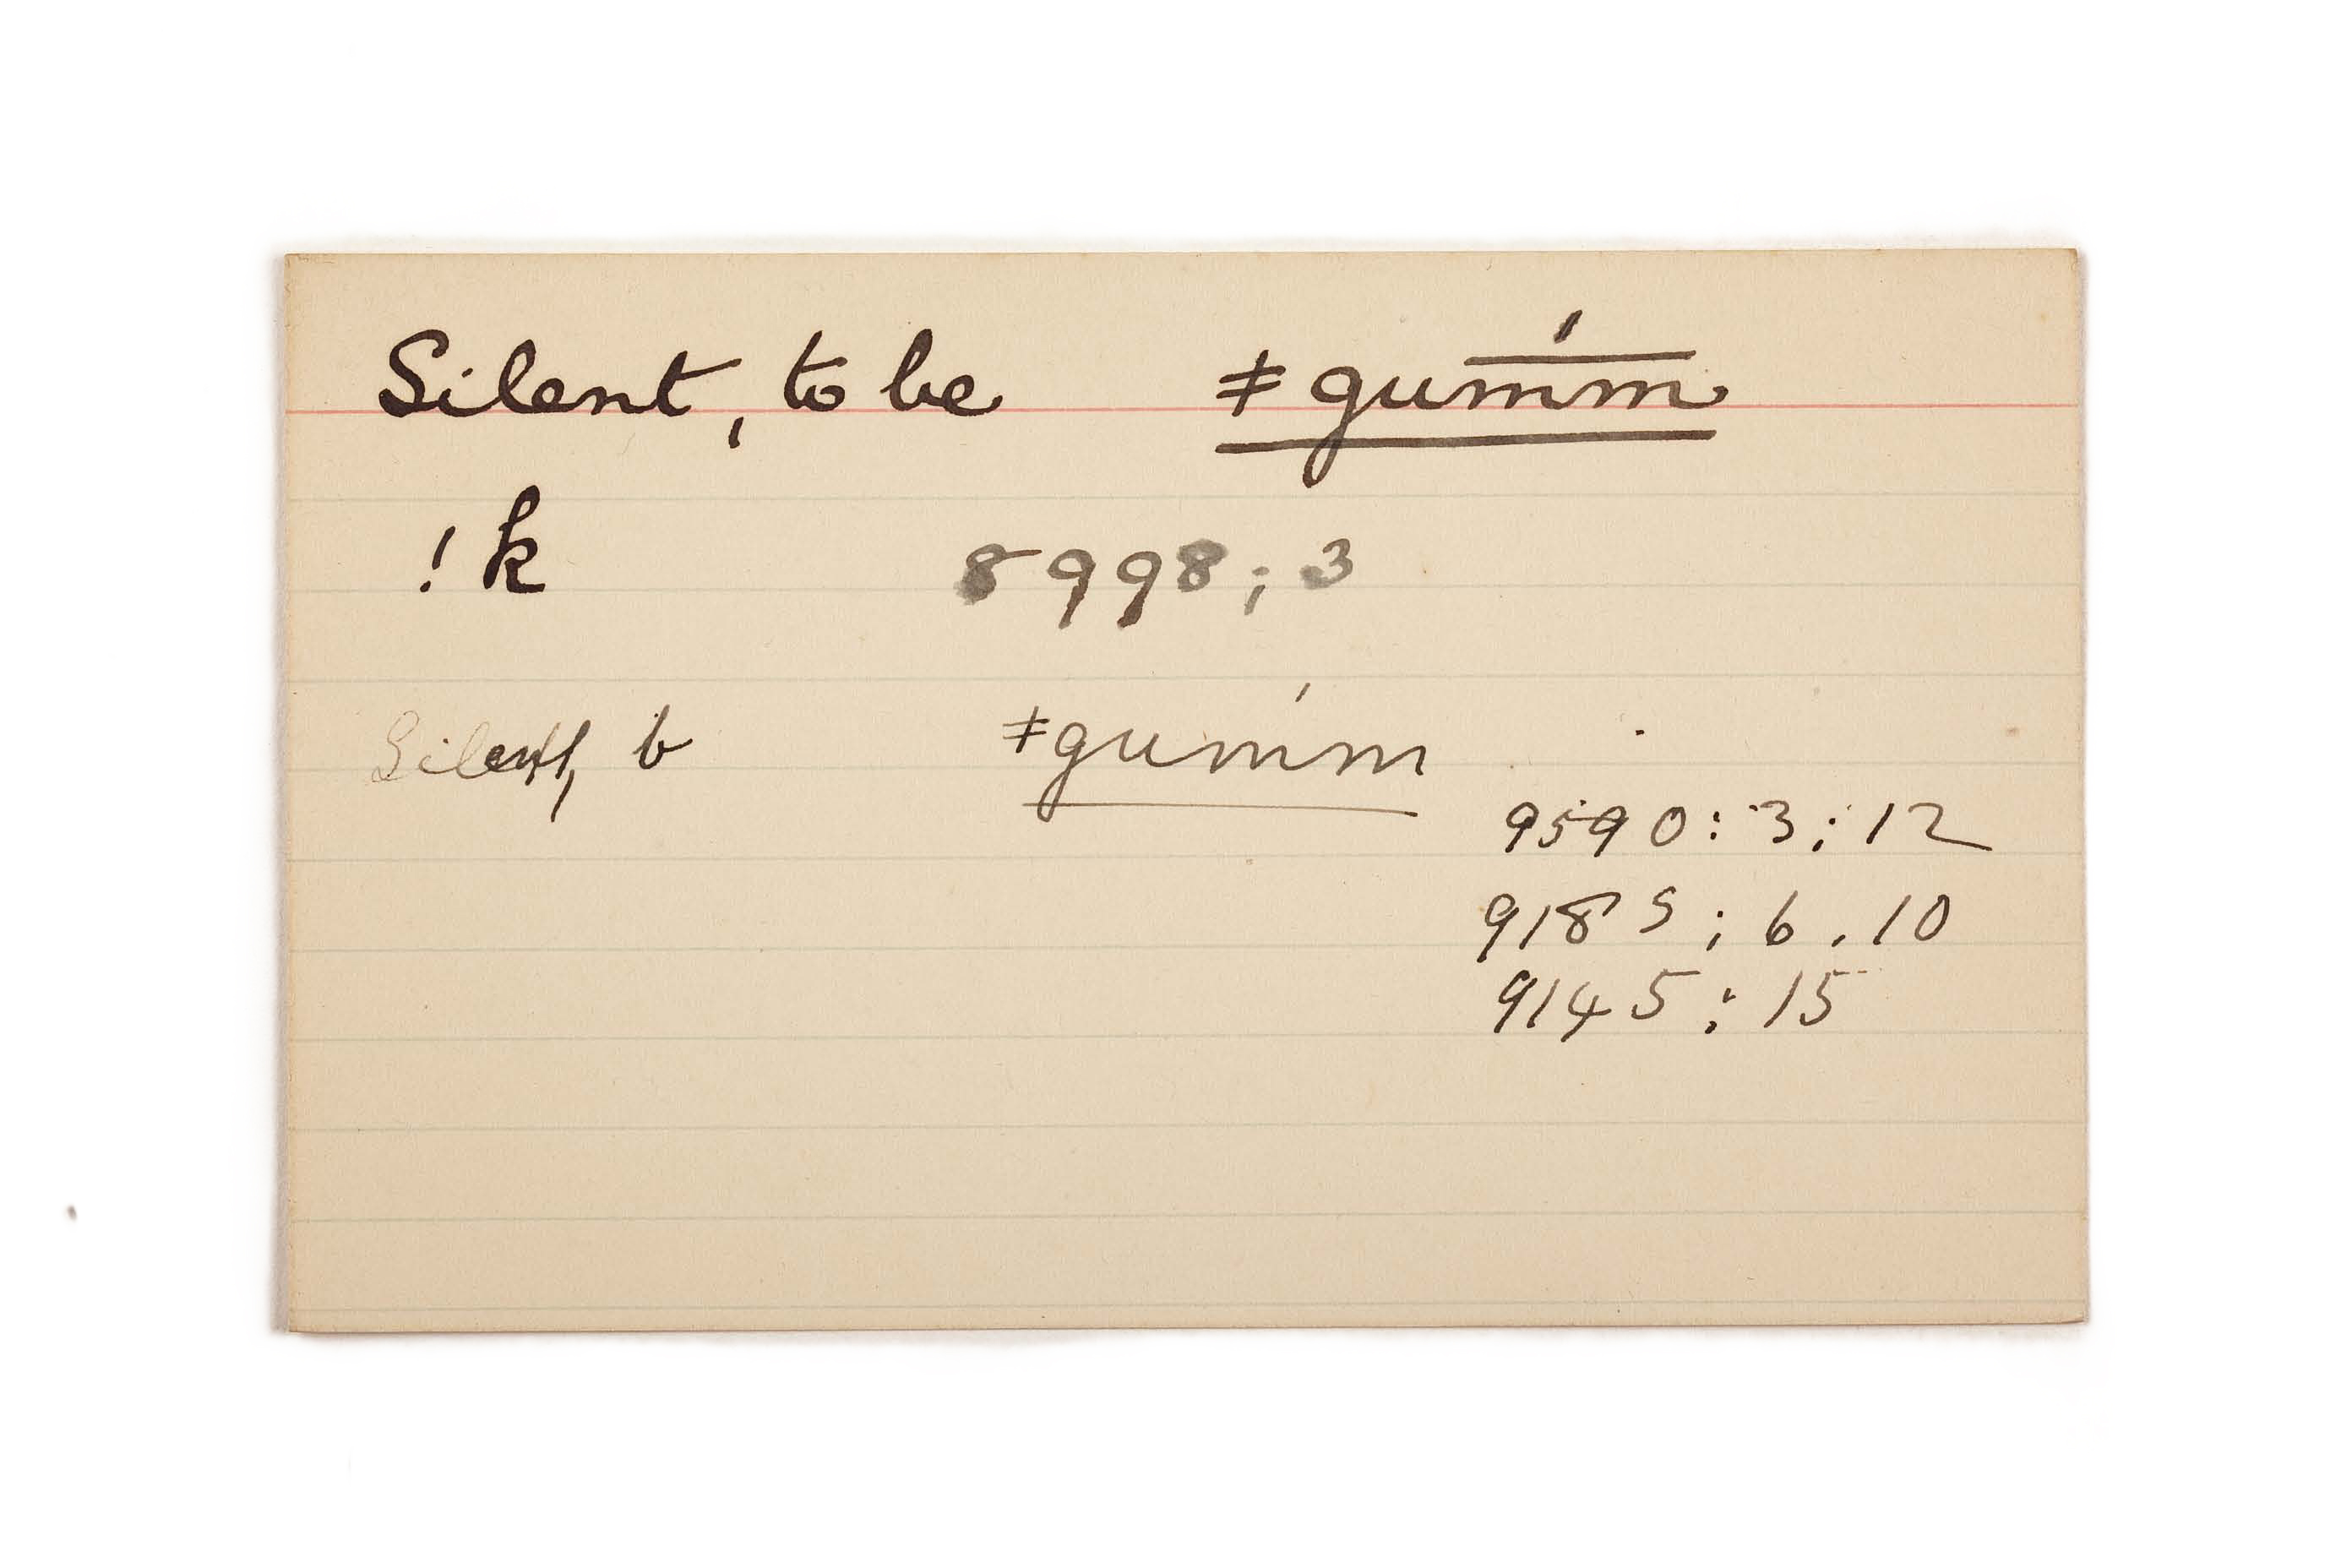 Silent, to be ǂgum̅́m̅
!k 8998; 3
Silent, b ǂgumḿ
9590: 3; 12
9185; 6. 10
9145: 15